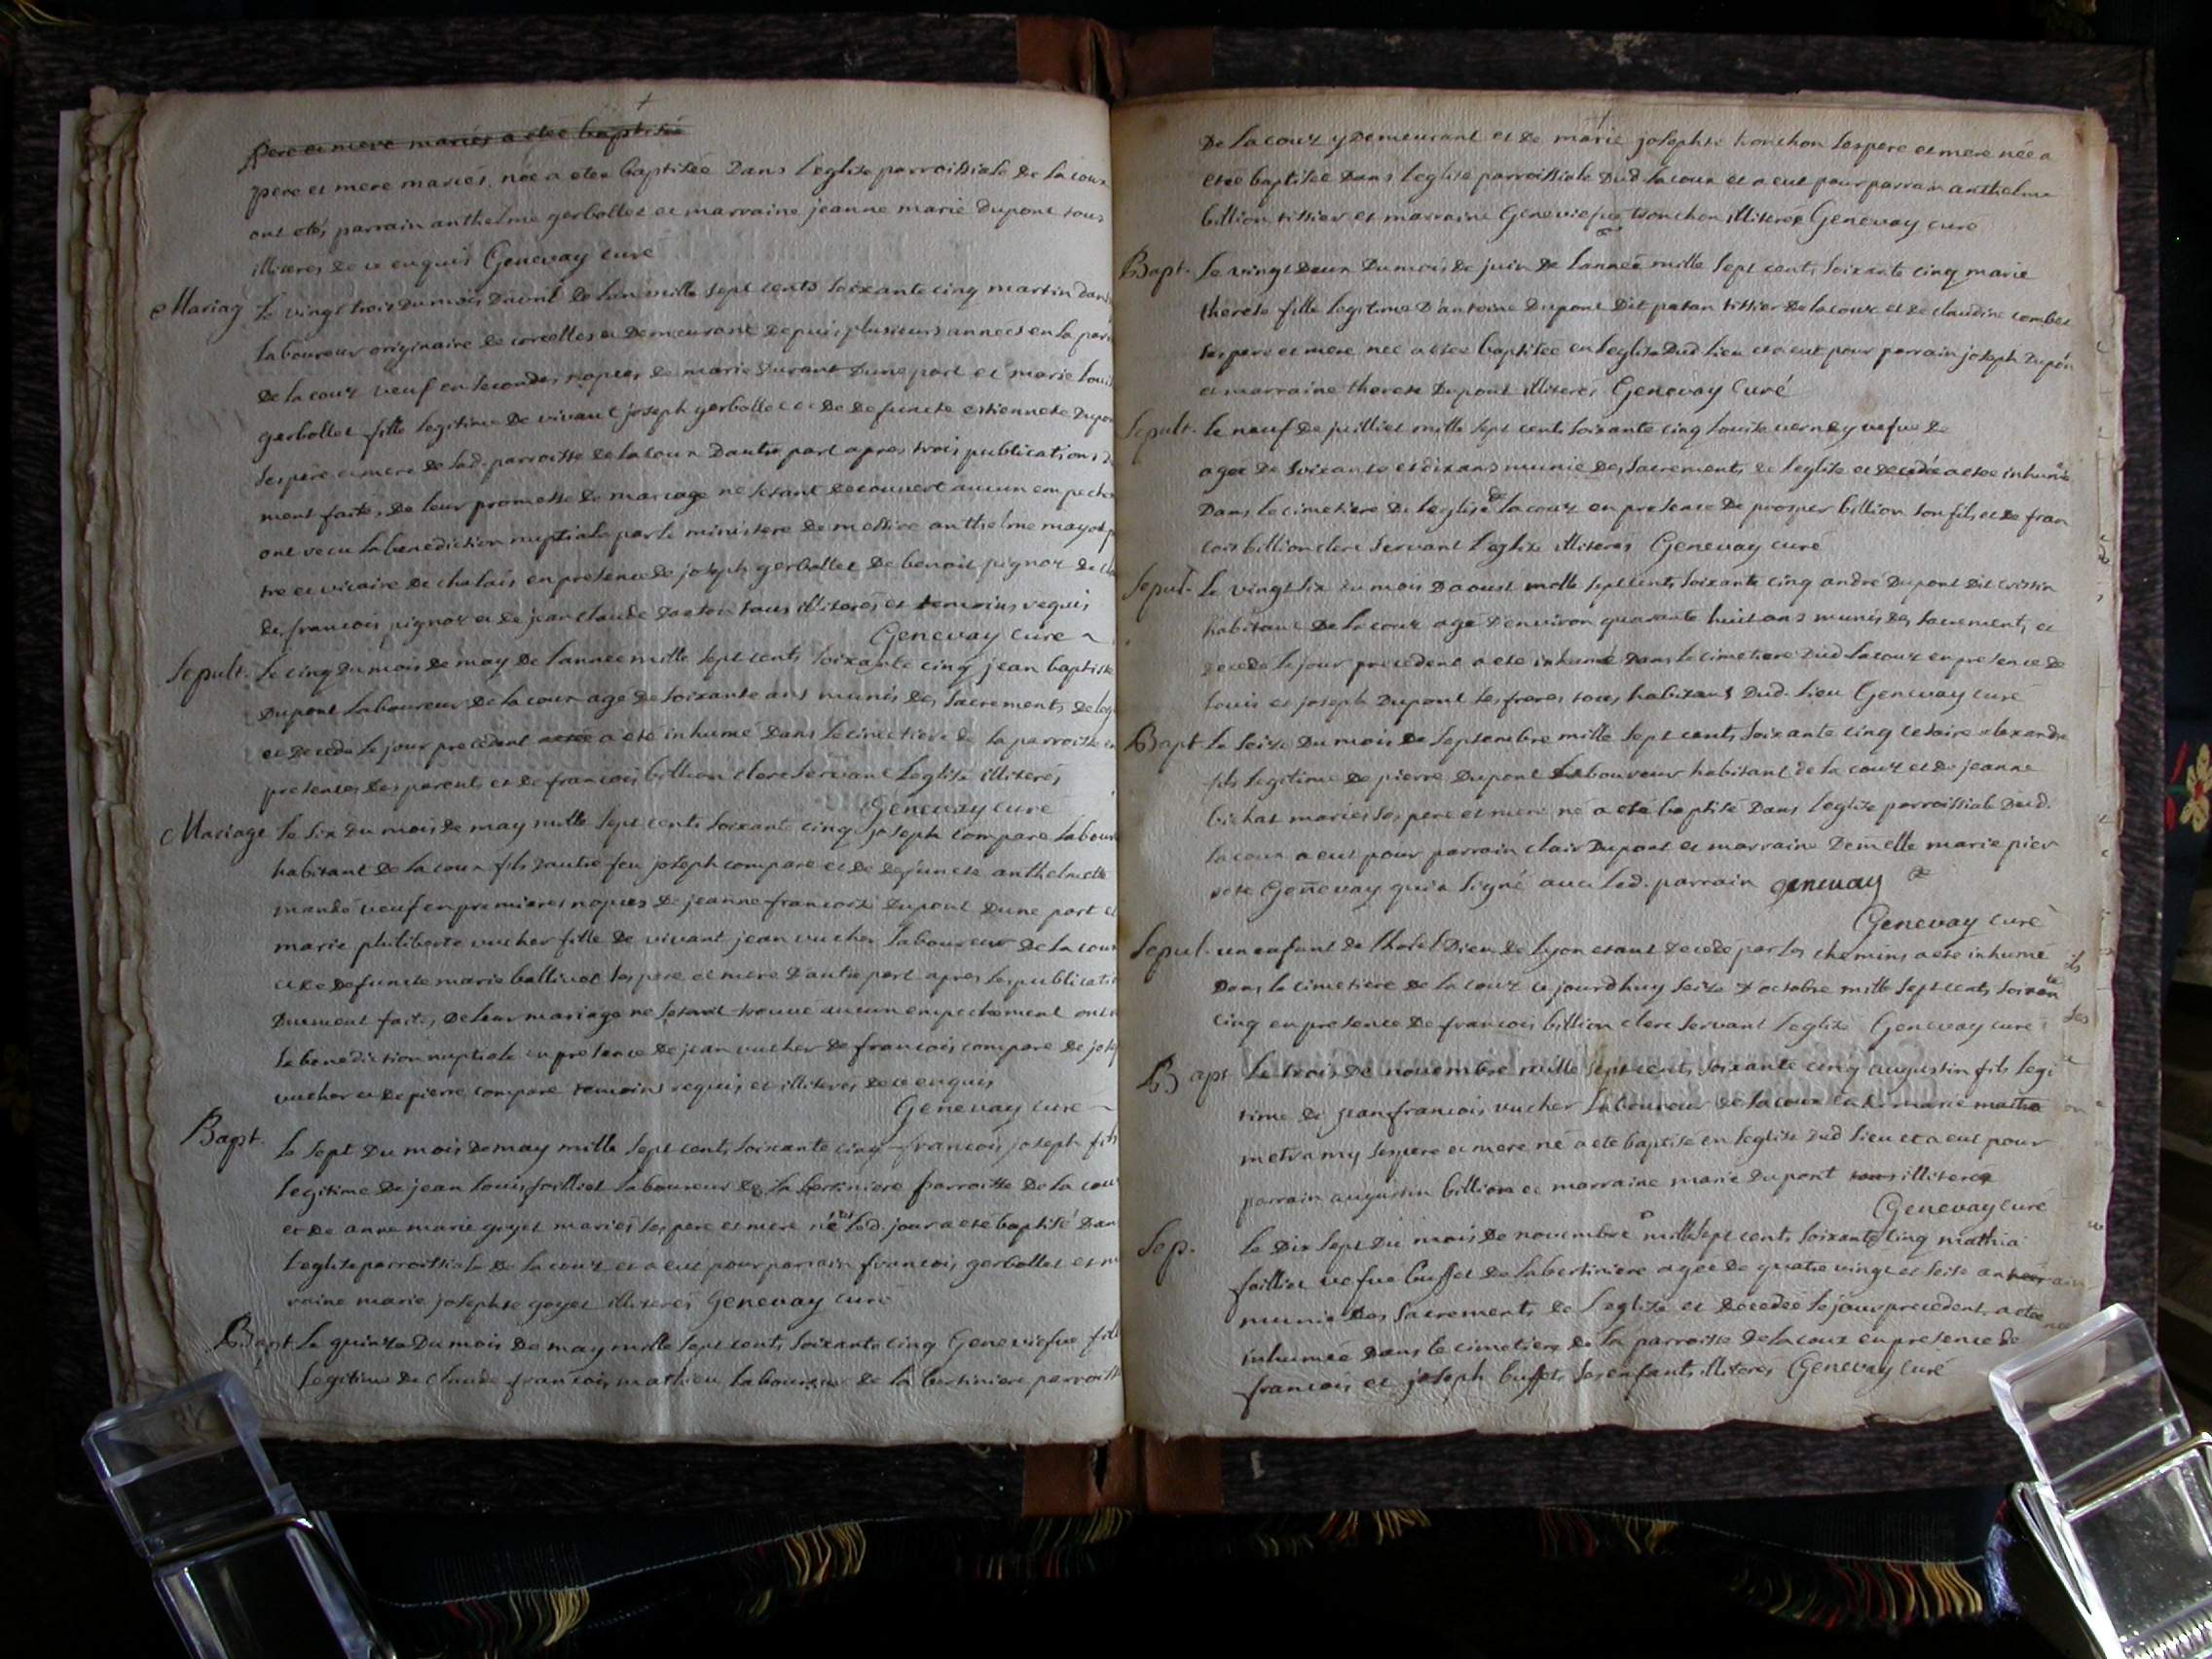 pere et mere mariés a etee baptisée
pere et mere mariés, née a etee baptisée Dans l'eglise parroissiale de la coux
ont etés parrain anthelme gerbollet et marraine jeanne marie Dupont tous
illiteres de ce enquis Genevay curé
Mariag Le vingt trois du mois Davril de lan mille sept cents soixante cinq martin
laboureur originaire de corcelles et Demeurant depuis plusieurs années en la par
De la coux veuf en secondes nopces de marie Durant Dune part et marie loui
gerbollet fille legitime De vivant joseph gerbollet et de Defuncte estiennete Dupon
ses pere et mere de lad. parroisse de la coux Dautre part apres trois publications
ment faites De leur promesse de mariage ne setant decouvert aucun empeche
ont recu la benediction nuptiale par le ministere de messire anthelme mayot p
tre et vicaire de chalais en presence de joseph gerbollet De benoit pignoz de
de francois pignoz et de jean claude tous illiterés et temoins requis
Genevay curé
Sepult. Le cinq du mois de may de lannee mille sept cents soixante cinq jean baptiste
Dupont laboureur De la coux agé de soixante ans munis des sacrements de leg
et Decedé le jour precedent a eté inhumé Dans le cimetiere de la parroisse en
presences des parents et de francois billion clerc servant l'eglise illiterés
Genevay curé
Mariage le six du mois de may mille sept cents soixante cinq joseph compare labour
habitant De la coux fils dautre feu joseph compare et de defuncte anthelmette
mande veuf en premieres nopces De jeanne francoise Dupont Dune part et
marie philiberte vucher fille de vivant jean vucher laboureur De la coux
et de defuncte marie ballivet ses pere et mere Dautre part apres les publicati
Duement faites De leur mariage ne setant trouvé aucun empechement ont r
la benediction nuptiale en presence de jean vucher de francois compare de jos
vucher et de pierre compare temoins requis et illiterés de ce enquis
Genevay curé
Bapt. le sept Du mois de may mille sept cents soixante cinq francois joseph fils
legitime De jean louis failliet laboureur de la bertiniere parroisse De la coux
et de anne marie goyet mariés ses pere et mere né led. jour a eté baptisé Dan
l'eglise parroissiale De la coux et a eut pour parrain francois gerbollet et m
raine marie josephte goyet illiterés Genevay curé
Bapt Le quinze Du mois De may mille sept cents soixante cinq Geneviefve fill
legitime De Claude francois mathieu laboureur de la bertiniere parroisse
De la coux y Demeurant et de marie josephte tronchon ses pere et mere née a
etee baptisée Dans l'eglise parroissiale Dud. la coux et a eut pour parrain anthelme
billion tissier et marraine Geneviefve tronchon illiterés Genevay curé
Bapt. Le vingt Deux Du mois de juin de lannee mille sept cents soixante cinq marie
therese fille legitime D'antoine Dupont Dit patan tissier De la coux et de claudine combet
ses pere et mere née a etee baptisée en leglise Dud lieu et a eut pour parrain joseph Dupon
et marraine therese Dupont illiteres Genevay Curé
Sepult. Le neuf De juilliet mille sept cents soixante cinq louise verney vefve De
agée De soixante et dix ans munie des sacrements de l'eglise et decedée a etee inhumé
Dans le cimetiere De l'eglise de la coux en presence De prosper billion son fils et de fran
cois billion clerc servant l'eglise illiteres Genevay curé
Sepul. Le vingt six du mois Daoust mille sept cents soixante cinq andré Dupont Dit
habitant De la coux agé d'environ quarante huit ans munis des sacrements et
decedé le jour precedent a eté inhumé Dans le cimetiere Dud la coux en presence De
louis et joseph Dupont ses freres tous habitant Dud. lieu Genevay curé
Bapt Le seize Du mois De septembre mille sept cents soixante cinq cesaire alexandre
fils legitime De pierre Dupont laboureur habitant de la coux et de jeanne
bichat mariés ses pere et mere né a eté baptisé Dans leglise parroissiale Dud.
la coux a eut pour parrain clair Dupont et marraine Demelle marie pier
rete Genevay qui a signé avec led. parrain genevay
Genevay curé
Sepul. un enfant de l'hotel Dieu de Lyon etant decedé par les chemins a eté inhumé
Dans le cimetiere De la coux ce jourdhuy seize d'octobre mille sept cents soixante
cinq en presence De francois billion clerc servant l'eglise Genevay curé
Bapt Le trois De novembre mille sept cents soixante cinq augustin fils legi
time de jean francois vucher laboureur de la coux et de marie
metra my ses pere et mere né a eté baptisé en leglise Dud lieu et a eut pour
parrain augustin billion et marraine marie Dupont tous illiteres
Genevay curé
Sep. Le Dix sept Du mois De novembre mille sept cents soixante cinq mathia
failliet vefve buffet de la bertiniere agée de quatre vingt et seise an
munie Des sacrements de l'eglise et Decedée le jour precedent a etee
inhumée Dans le cimetiere de la parroisse De la coux en presence de
francois et joseph buffet ses enfants illiteres Genevay curé